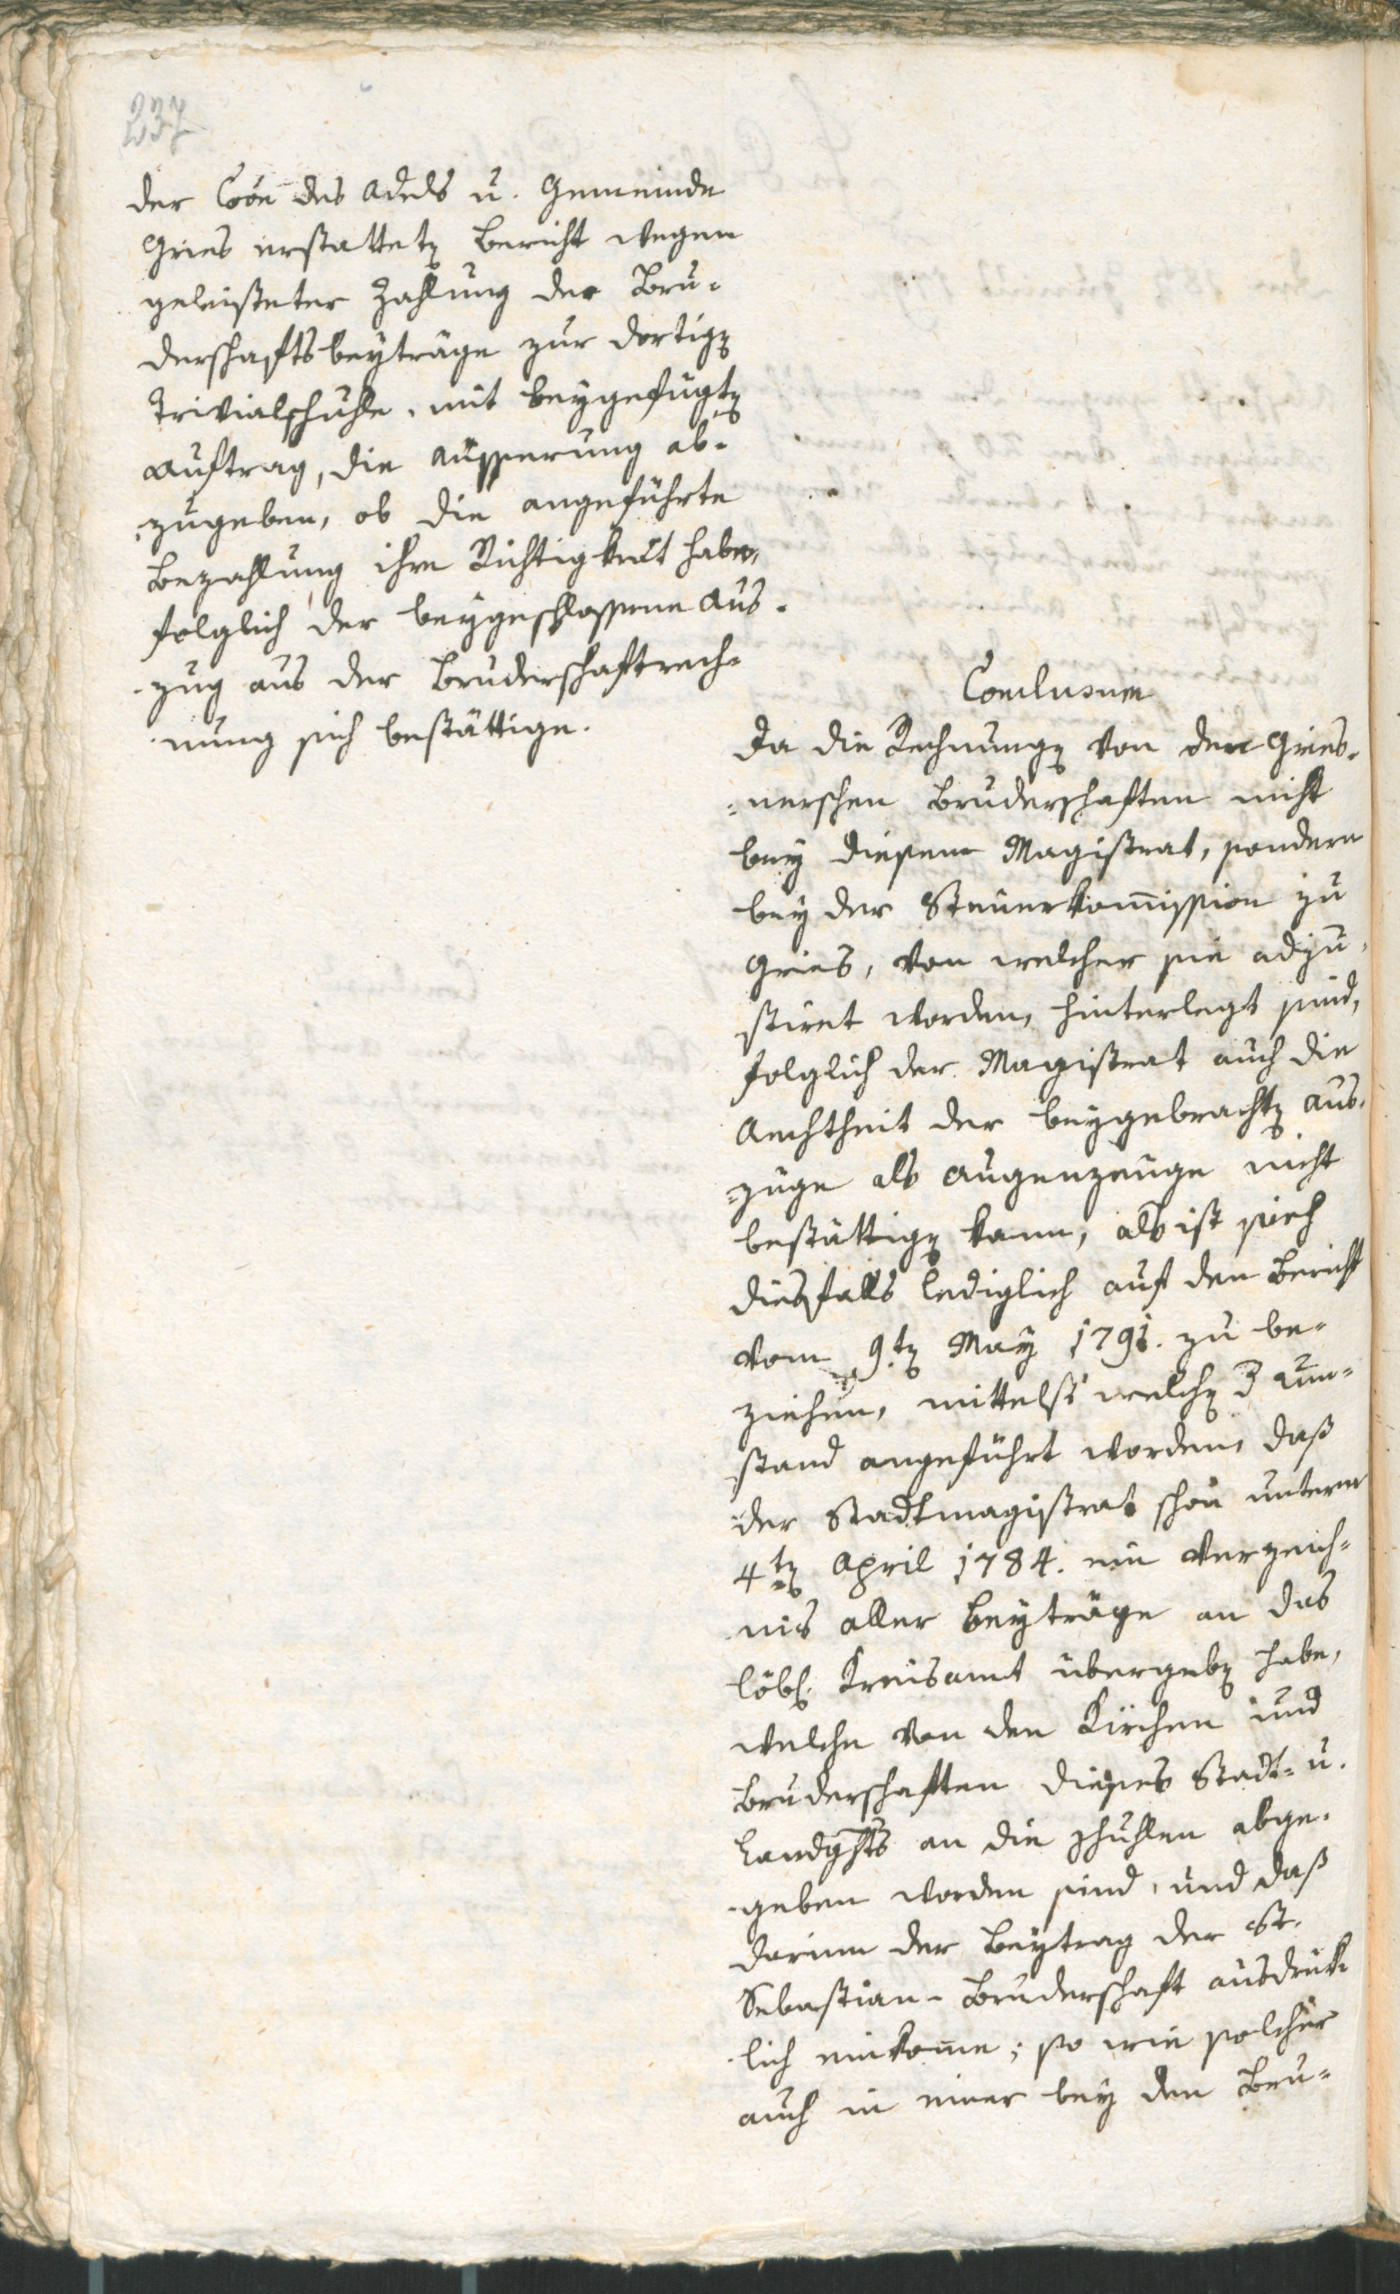 237
der Coõn des Adels u. Gemeinde
Gries erstatteten Bericht wegen
geleisteter Zahlung der Bru-
derschaftsbeyträge zur dortigen
Trivialschulle, mit beygefügten
Auftrag, die Äusserung ab-
zugeben, ob die angeführte
Bezahlung ihre Richtigkeit habe,
folglich der beygeschlossene Aus-
zug aus der Bruderschaftrech-
nung sich bestättige.
Conclusum
Da die Rechnungen von den Gries-
nerschen Bruderschaften nicht
bey diesem Magistrat, sondern
bey der Steuerkom̅ission zu
Gries, von welcher sie adju-
stiret worden, hinterlegt sind,
folglich der Magistrat auch die
Aechtheit der beygebrachten Aus-
züge als Augenzeuge nicht
bestättigen kann, als ist sich
diesfalls lediglich auf den Bericht
vom 9.ten May 1791. zu be-
ziehen, mittelst welchen der Um-
stand angeführt worden, daß
der Stadtmagistrat schon unterm
4ten April 1784. ein Verzeich-
nis aller Beyträge an das
löbl. Kreisamt übergeben habe,
welche von den Kirchen und
Bruderschaften dieses Stadt- u.
Landghts an die Schullen abge-
geben worden sind, und daß
darinn der Beytrag der St.
Sebastian-Bruderschaft ausdrük-
lich einkom̅e; so wie solcher
auch in einer bey den Bru-